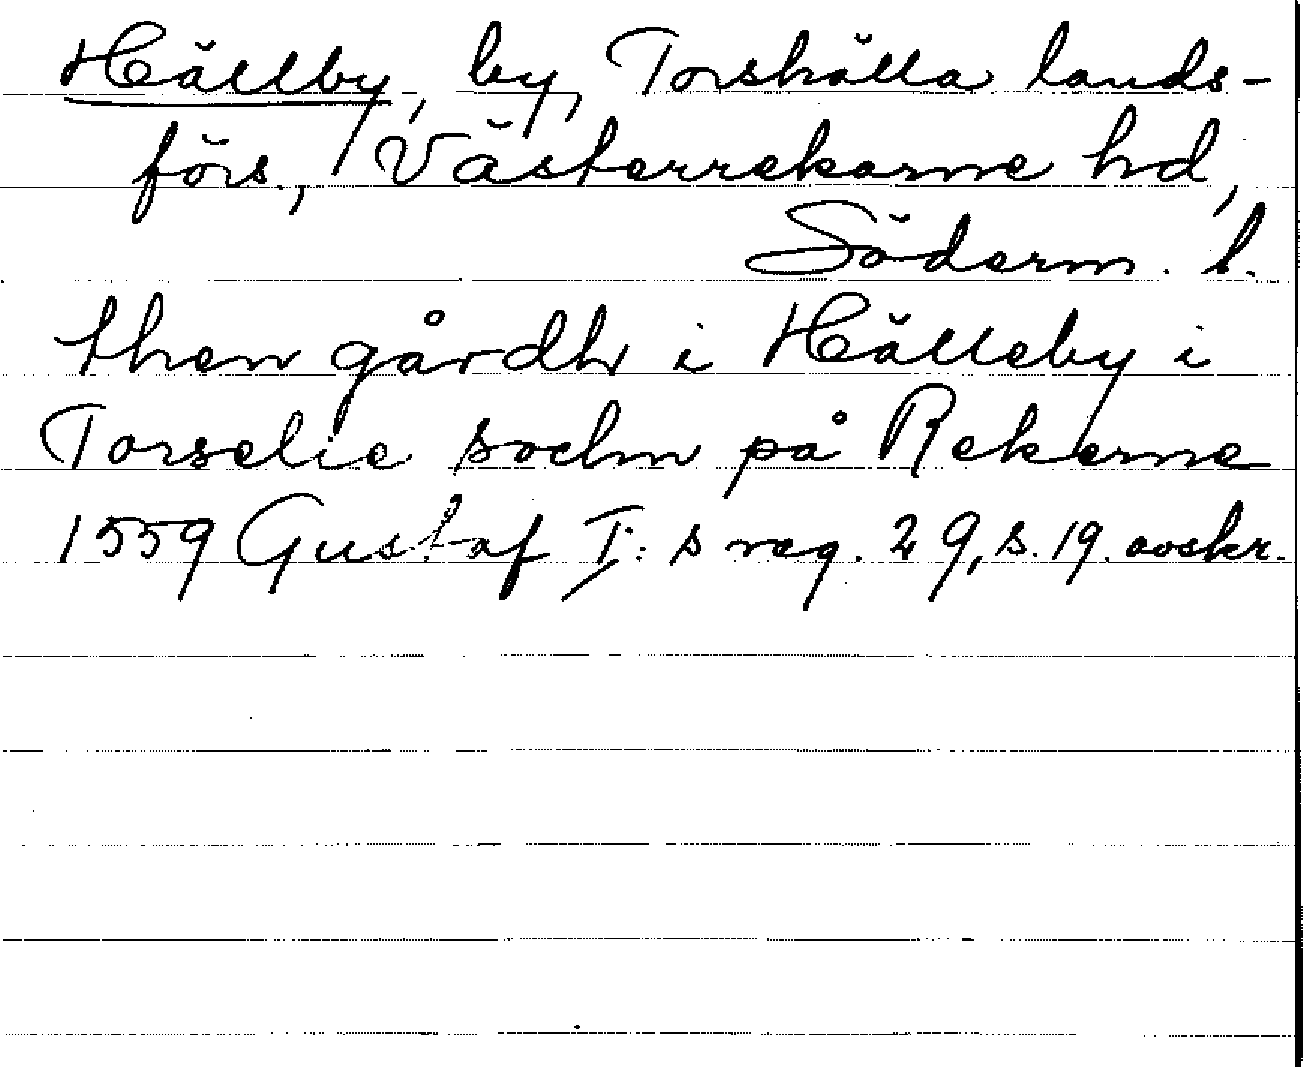 Hällby, by, Torshälla lands-
förs., Västerrekarne hd,
Söderm. l.
then gårdh i Hälleby i
Torselie sochn på Rekerne
1559 Gustaf I:s reg. 29, s. 19. avskr.